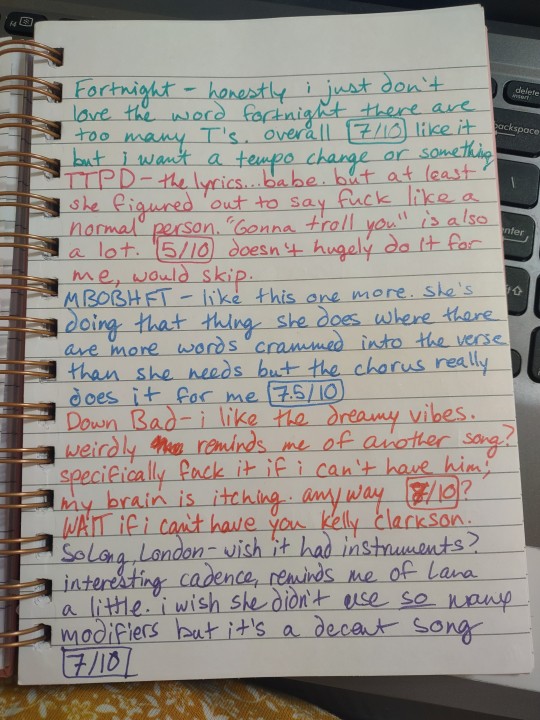 Fortnight - honestly i just don't
love the word fortnight there are
too many T's. overall 7/10 like it
but i want a tempo change or something
TTPD - the lyrics... babe. but at least
she figured out to say fuck like a
normal person. "Gonna troll you" is also
a lot. 5/10 doesn't hugely do it for
me, would skip.
MBOBHFT - like this one more. she's
doing that thing she does where there
are more words crammed into the verse
than she needs but the chorus really
does it for me 7.5/10
Down Bad - i like the dreamy vibes.
weirdly reminds me of another song?
specifically fuck it if i can't have him;
my brain is itching. anyway 7/10?
WAIT if i can't have you kelly clarkson.
So Long, London - wish it had instruments?
interesting cadence, reminds me of Lana
a little. i wish she didn't use so many
modifiers but it's a decent song
7/10
M
delete
insert
backspace
\
enter